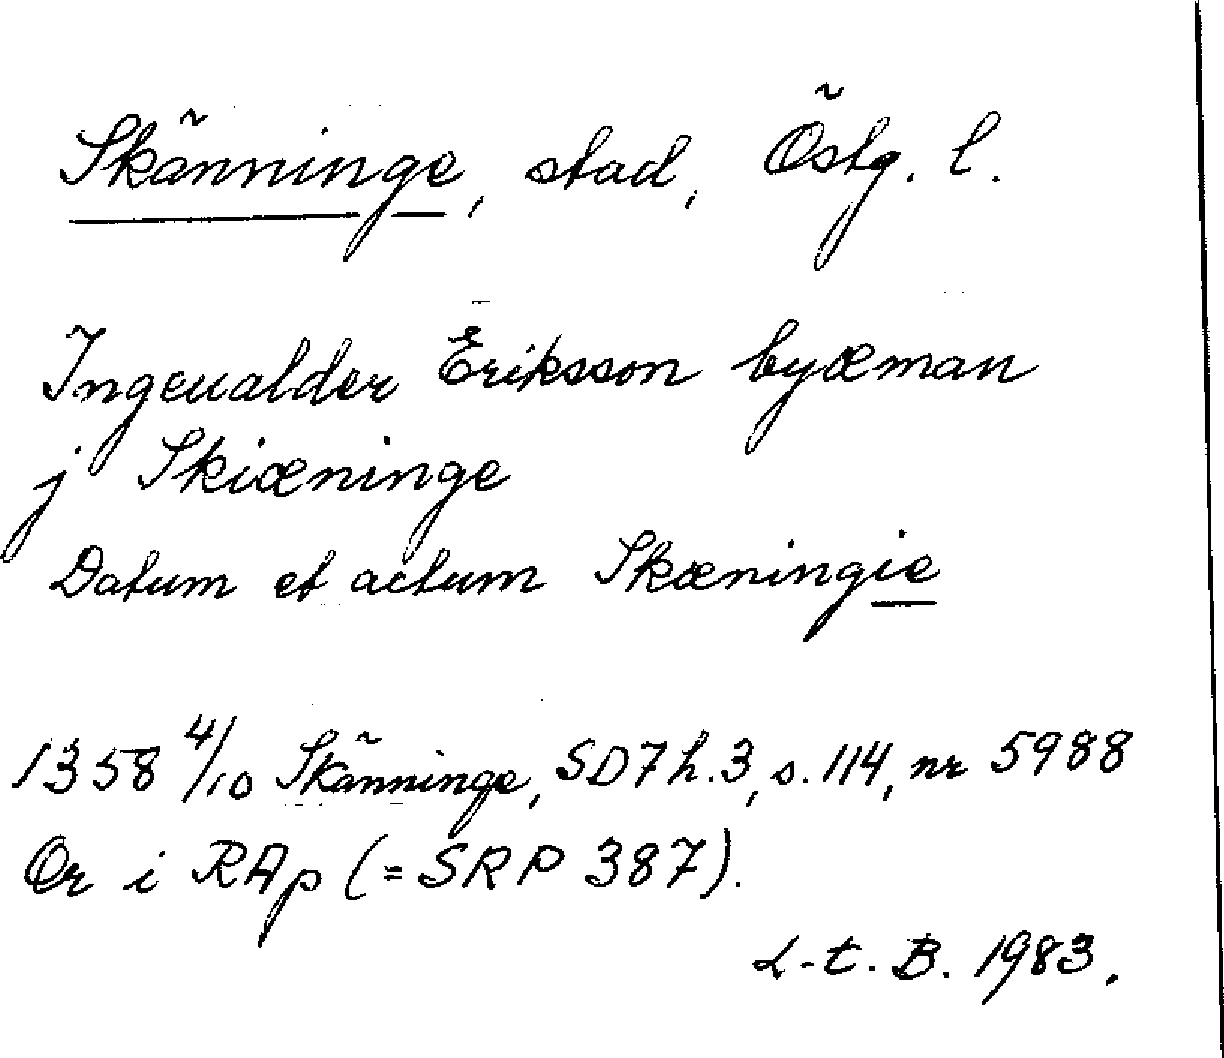 Skänninge, stad, Östg. l.
Ingeualder Eriksson byæman
j Skiæninge
Datum et actum Skæningie
1358 4/10 Skänninge, SD7 h.3, s. 114, nr 5988
Or i RAp (= SRP 387).
L-t. B. 1983.